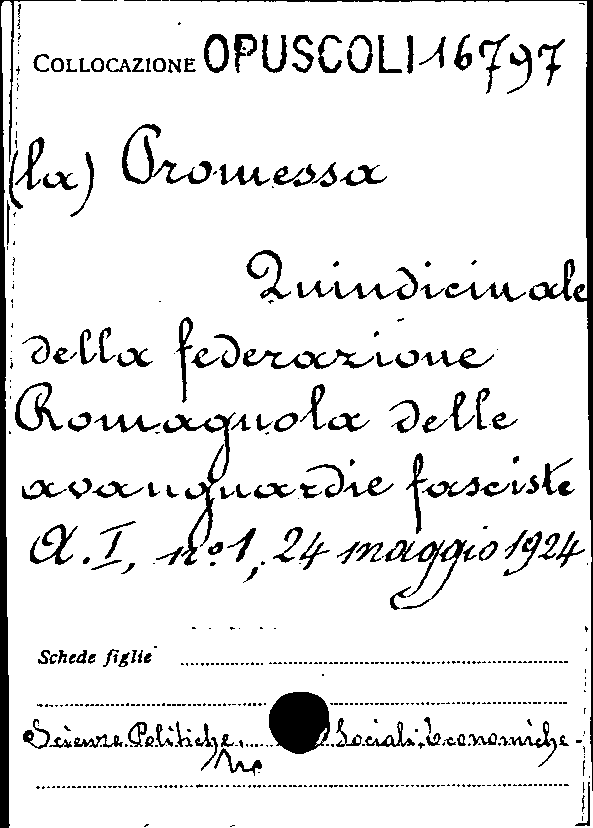 COLLOCAZIONE OPUSCOLI 16797
(la) Promessa
Quindicinale
della federazione
Romagnola delle
avanguardie fasciste
A. I, nº 1, 24 maggio 1924
Schede figlie
Scienze Politiche, Sociali, Economiche -